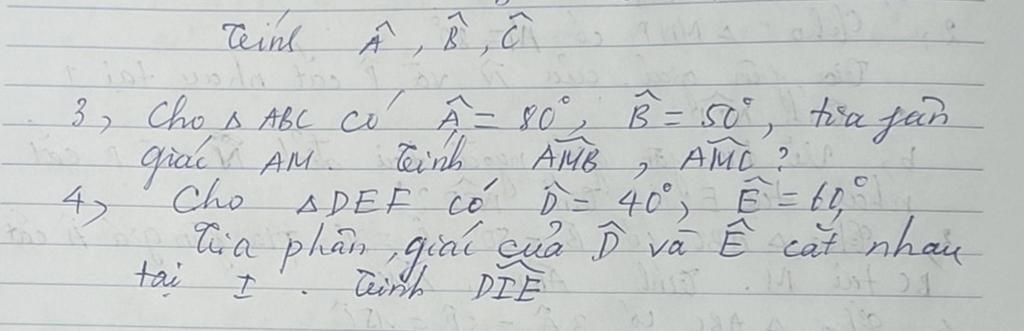 Tính Â, B̂, Ĉ
3, Cho △ ABC có Â = 80°, B̂ = 50°, tia fân
giác AM. Tính AM̂B, AM̂C?
4, Cho △DEF có D̂ = 40°, Ê = 60°,
Tia phân giác của D̂ và Ê cắt nhau
tại I. Tính DÎE